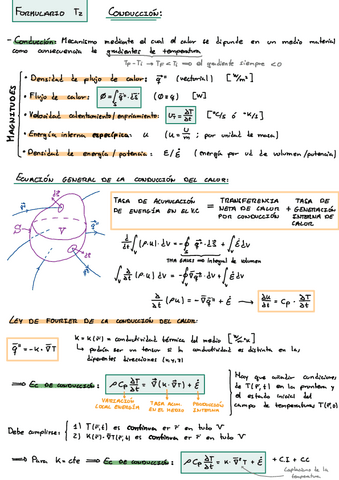 FORMULARIO T2 CONDUCCIÓN:
- Conducción: Mecanismo mediante el cual el calor se difunde en un medio material
como consecuencia de gradientes de temperatura
MAGNITUDES
• Densidad de flujo de calor: q̇" (vectorial) [W/m²]
• Flujo de calor: Φ = ∫ q̇"·ds̄ (Φ = q) [W]
• Velocidad calentamiento/enfriamiento: v_T = ∂T/∂t [°C/s ó °K/s]
• Energía interna específica: u (u = U/m ; por unidad de masa)
• Densidad de energía / potencia: E/Ė (energía por ud de volumen/potencia)
ECUACIÓN GENERAL DE LA CONDUCCIÓN DEL CALOR:
TASA DE ACUMULACIÓN DE ENERGÍA EN EL VC = TRANSFERENCIA NETA DE CALOR POR CONDUCCIÓN + TASA DE GENERACIÓN INTERNA DE CALOR
S V Q
d/dt ∫ (ρ·u)·dV = -∮ q̇"·ds̄ + ∫ Ė dV
THA GAUSS ⇒ integral de volumen
∫ ∂/∂t (ρ·u) dV = -∮ ∇̄q̇"·dV + ∫ Ė dV
∂/∂t (ρ·u) = -∇̄q̇" + Ė → ∂u/∂t = Cp · ∂T/∂t
LEY DE FOURIER DE LA CONDUCCIÓN DEL CALOR:
q̇" = -K·∇̄T
K = K(r̄) = conductividad térmica del medio [W/m°K]
↳ podría ser un tensor si la conductividad es distinta en las
diferentes direcciones (x,y,z)
⟹ EC DE CONDUCCIÓN: ρ Cp ∂T/∂t = ∇̄(K·∇̄T) + Ė
VARIACIÓN LOCAL ENERGÍA
TASA ACUM. EN EL MEDIO
PRODUCCIÓN INTERNA
Hay que añadir condiciones
de T(r̄,t) en la frontera y
el estado inicial del
campo de temperaturas T(r̄,0)
Debe cumplirse:
1) T(r̄,t) es continua en r̄ en todo V
2) K(r̄)·∇̄T(r̄,t) es continua en r̄ en todo V
⟹ Para K = cte ⟹ EC DE CONDUCCIÓN: ρ Cp ∂T/∂t = K·∇²T + Ė + CI + CC
Laplaciano de la temperatura